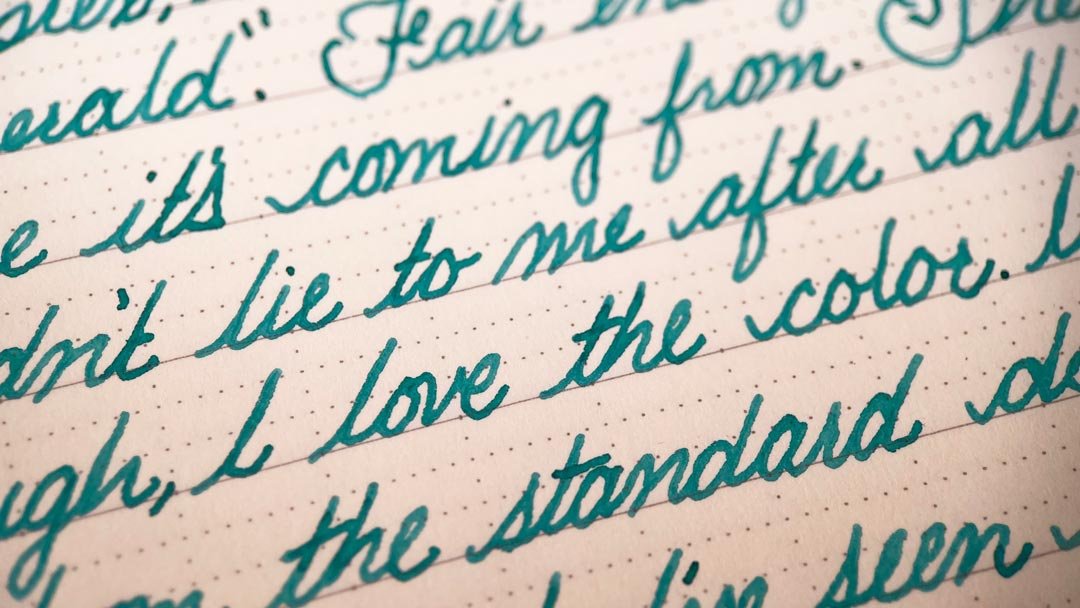 erald". Fair
e it's coming from. The
dn't lie to me after all
ugh, I love the color.
the standard de
I've seen